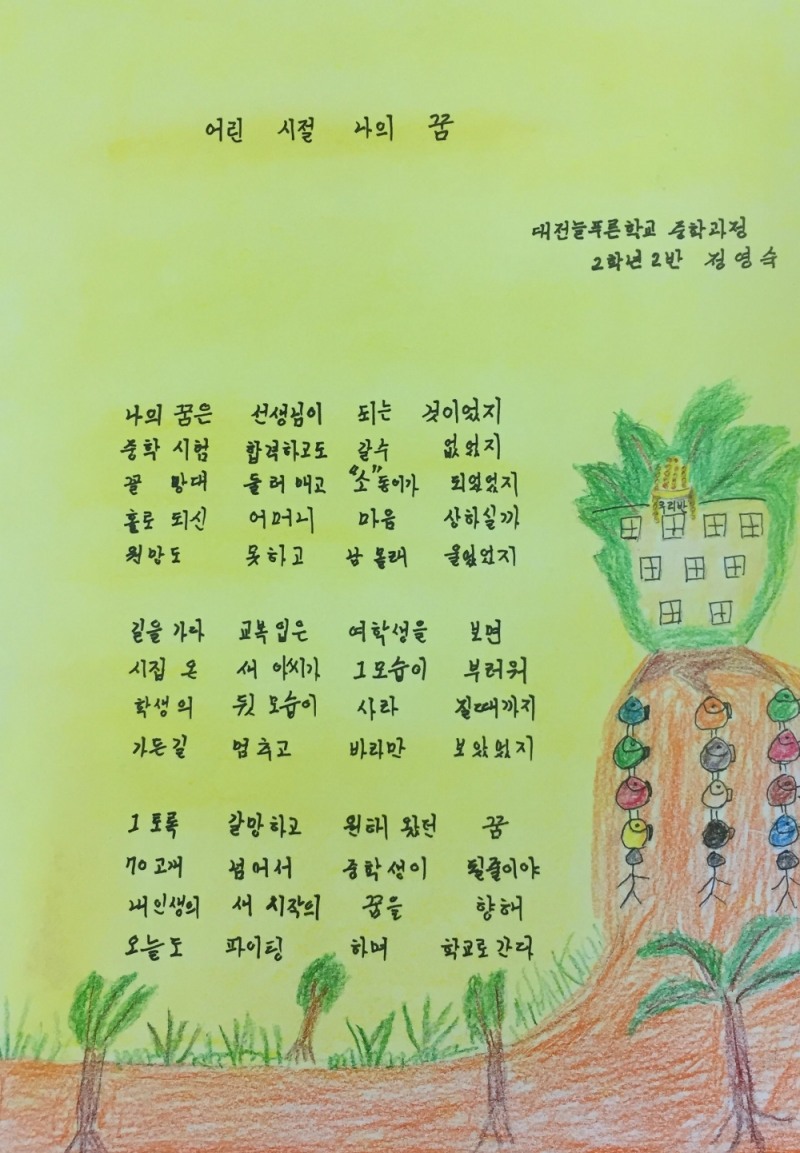 어린 시절 나의 꿈
대전늘푸른학교 중학과정
2학년 2반 정영숙
나의 꿈은 선생님이 되는 것이었지
중학 시험 합격하고도 갈수 없었지
꼴 망대 둘러 매고 "소"동이가 되었었지
홀로 되신 어머니 마음 상하실까
원망도 못하고 남 몰래 울었었지
길을 가다 교복 입은 여학생을 보면
시집 온 새 아씨가 그모습이 부러워
학생의 뒷 모습이 사라 질때까지
가든길 멈추고 바라만 보았었지
그토록 갈망하고 원해 왔던 꿈
70고개 넘어서 중학생이 될줄이야
내인생의 새 시작의 꿈을 향해
오늘도 파이팅 하며 학교로 간다
우리반